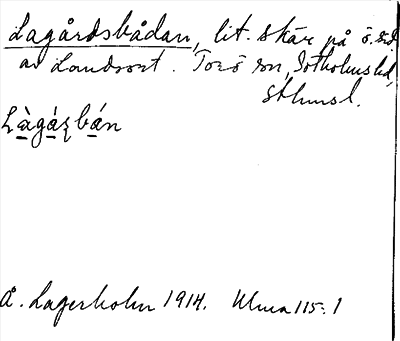 Lagårdsbådan, lit. skär på ö. sid.
av Landsort. Torö sn, Sotholms hd,
Sthlmsl.
Làgáʐbán
Å. Lagerholm 1914. Ulma 115:1